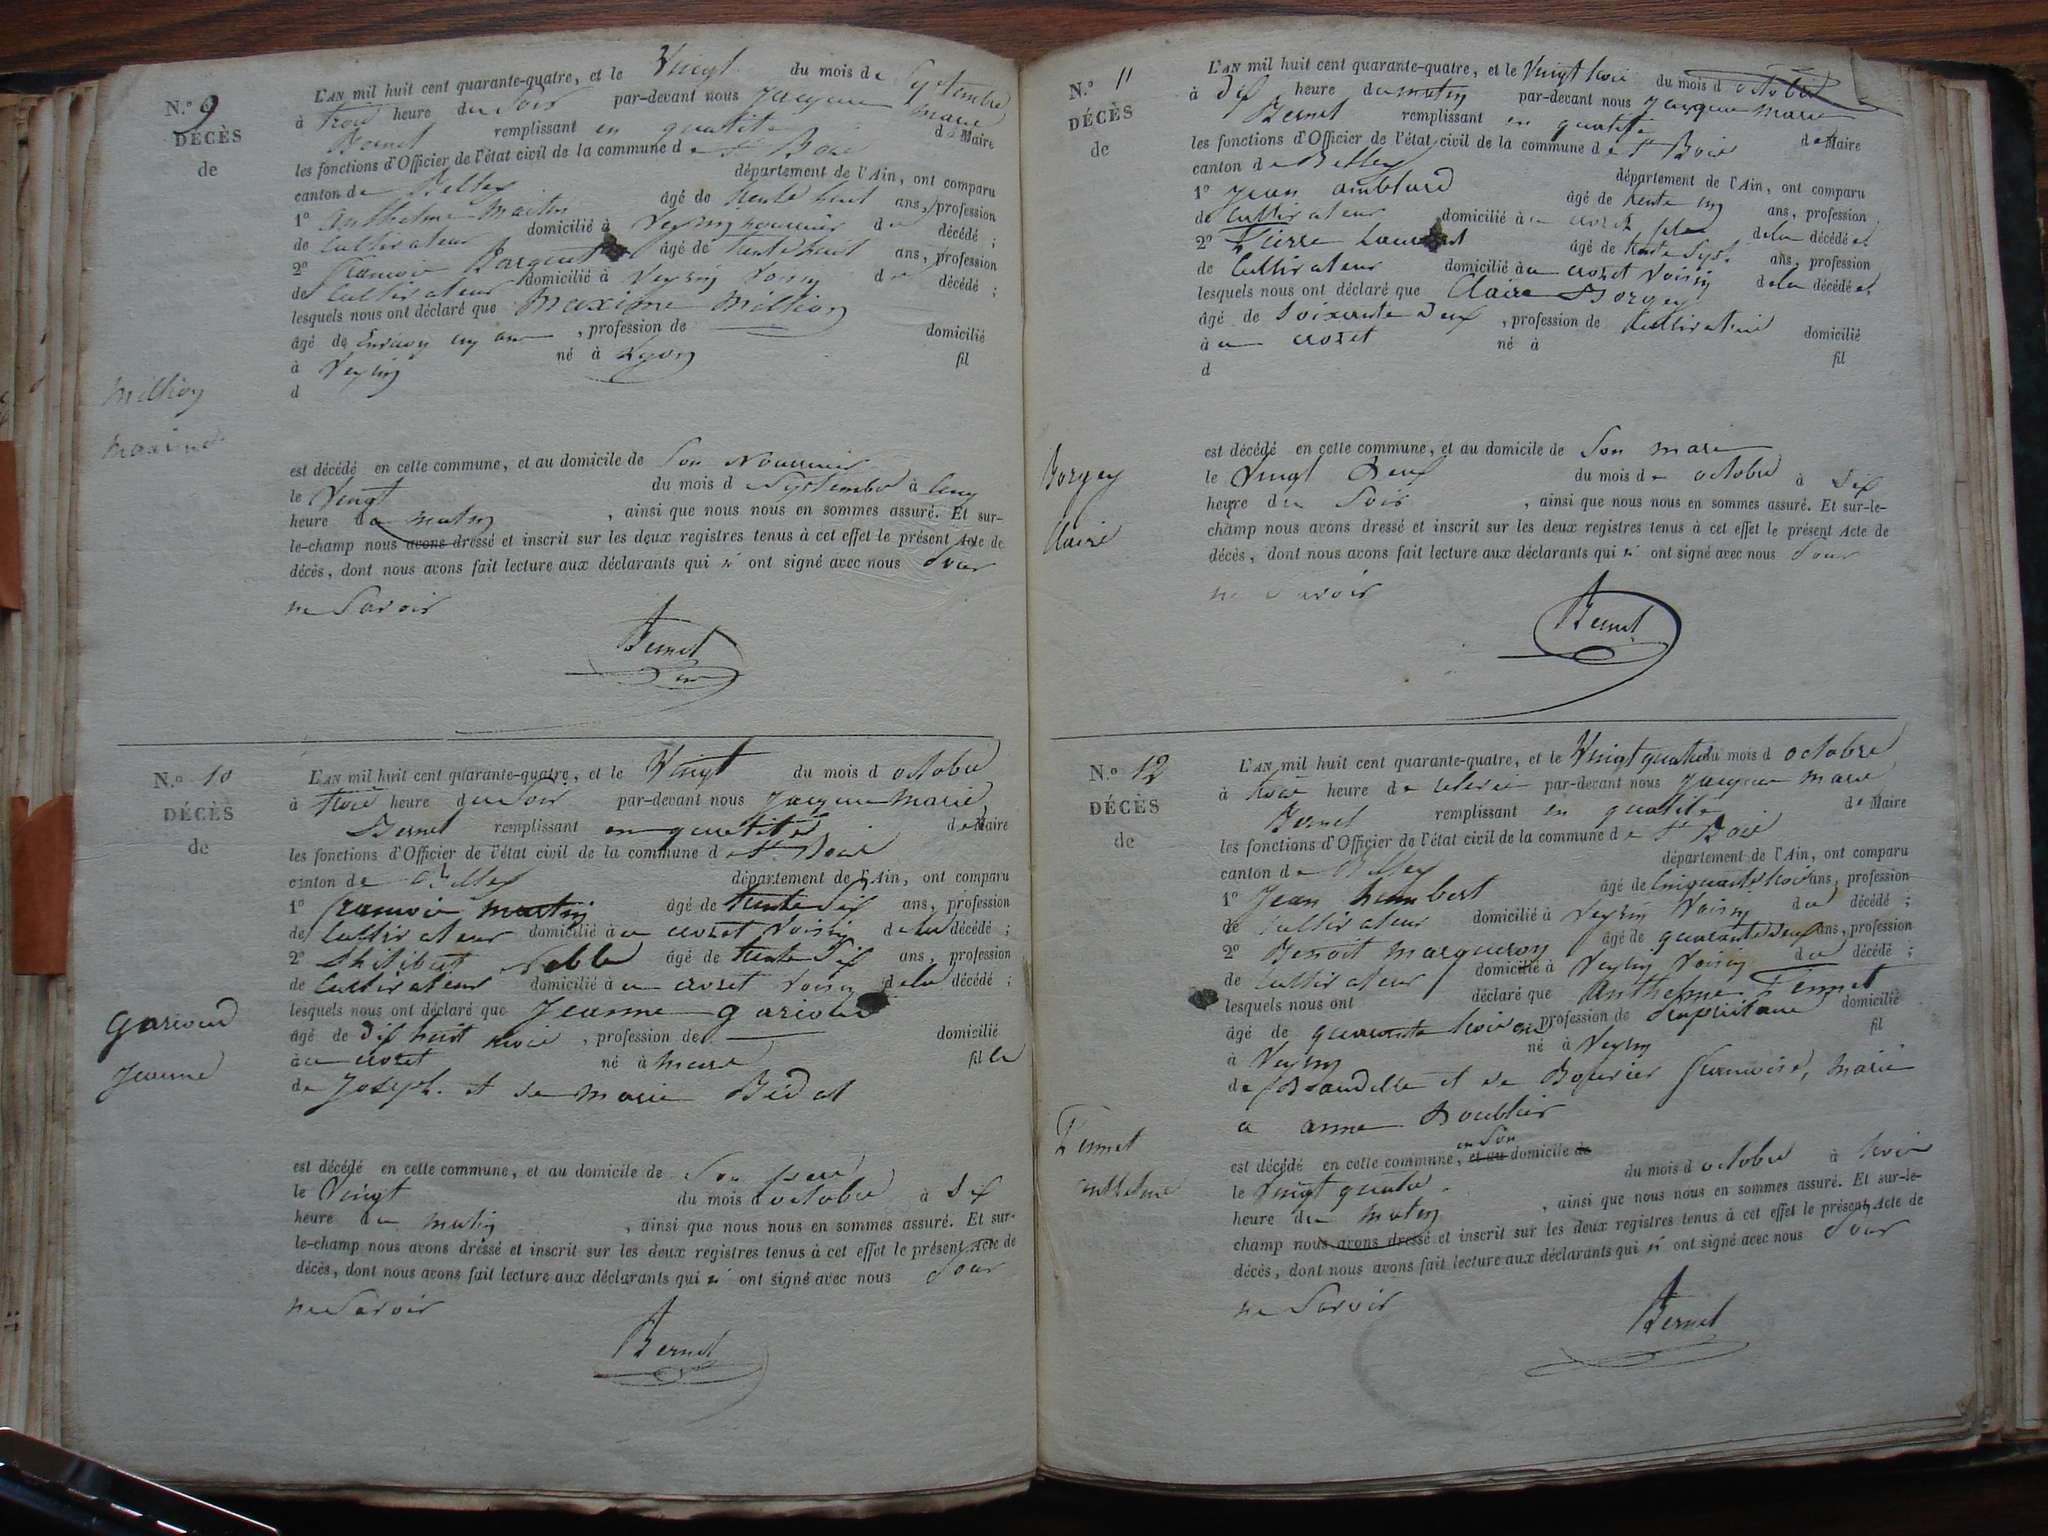 N.º 9
DÉCÈS
de
Million
maxime
L'AN mil huit cent quarante-quatre, et le Vingt du mois de Septembre
à trois heure du Soir par-devant nous Jacque marie
Bernet remplissant en qualité de Maire
les fonctions d'Officier de l'état civil de la commune de St Bois
canton de Belley département de l'Ain, ont comparu
1º Anthelme Martin âgé de trente huit ans, profession
de Cultivateur domicilié à Veyrin nourricier du décédé ;
2º françois âgé de trente huit ans, profession
de Cultivateur domicilié à Veyrin Voisin du décédé ;
lesquels nous ont déclaré que Maxime Million
âgé de Environ un an , profession de domicilié
à Veyrin né à Lyon fil
d
est décédé en cette commune, et au domicile de Son Nourricier
le Vingt du mois d Septembre à Cinq
heure du matin , ainsi que nous nous en sommes assuré. Et sur-
le-champ nous avons dressé et inscrit sur les deux registres tenus à cet effet le présent Acte de
décès, dont nous avons fait lecture aux déclarants qui n' ont signé avec nous pour
ne Savoir
Bernet
N.º 10
DÉCÈS
de
garioud
Jeanne
L'AN mil huit cent quarante-quatre, et le Vingt du mois d octobre
à trois heure du Soir par-devant nous Jacque Marie
Bernet remplissant en qualité de Maire
les fonctions d'Officier de l'état civil de la commune de St Bois
canton de Belley département de l'Ain, ont comparu
1º françois martin âgé de trente Six ans, profession
de Cultivateur domicilié au crozet Voisin de la décédé ;
2º Philibert noble âgé de trente Six ans, profession
de Cultivateur domicilié au crozet Voisin de la décédé ;
lesquels nous ont déclaré que Jeanne garioud
âgé de dix huit mois , profession de domicilié
au crozet né à fille
de Joseph. et de marie Bidat
est décédé en cette commune, et au domicile de Son père
le Vingt du mois d octobre à Six
heure du matin , ainsi que nous nous en sommes assuré. Et sur-
le-champ nous avons dressé et inscrit sur les deux registres tenus à cet effet le présent Acte de
décès, dont nous avons fait lecture aux déclarants qui n' ont signé avec nous pour
ne Savoir
Bernet
N.º 11
DÉCÈS
de
Borgey
Claire
L'AN mil huit cent quarante-quatre, et le Vingt trois du mois d octobre
à dix heure du matin par-devant nous Jacque marie
Bernet remplissant en qualité de Maire
les fonctions d'Officier de l'état civil de la commune de St Bois
canton de Belley département de l'Ain, ont comparu
1º Jean amblard âgé de trente cinq ans, profession
de Cultivateur domicilié au crozet de la décédé et
2º Pierre Laurent âgé de trente Sept ans, profession
de Cultivateur domicilié au crozet Voisin de la décédé et
lesquels nous ont déclaré que Claire Borgey
âgé de Soixante deux , profession de Cultivatrice domicilié
au crozet né à fil
d
est décédé en cette commune, et au domicile de Son mari
le Vingt Deux du mois de octobre à Six
heure du Soir , ainsi que nous nous en sommes assuré. Et sur-le-
champ nous avons dressé et inscrit sur les deux registres tenus à cet effet le présent Acte de
décès, dont nous avons fait lecture aux déclarants qui n' ont signé avec nous pour
ne Savoir
Bernet
N.º 12
DÉCÈS
de
Pennet
anthelme
L'AN mil huit cent quarante-quatre, et le Vingt quatre du mois d octobre
à trois heure de relevée par-devant nous Jacque marie
Bernet remplissant en qualité de Maire
les fonctions d'Officier de l'état civil de la commune de St Bois
canton de Belley département de l'Ain, ont comparu
1º Jean humbert âgé de Cinquante trois ans, profession
de Cultivateur domicilié à Veyrin Voisin du décédé ;
2º Benoit marqueron âgé de quarante deux ans, profession
de Cultivateur domicilié à Veyrin Voisin du décédé ;
lesquels nous ont déclaré que Anthelme Pennet
âgé de quarante trois ans profession de propriétaire domicilié
à Veyrin né à Veyrin fil
de et de Bouvier françoise, marié
a anne Doublier
est décédé en cette commune, et au en Son domicile de
le Vingt quatre du mois d octobre à trois
heure du matin , ainsi que nous nous en sommes assuré. Et sur-le-
champ nous avons dressé et inscrit sur les deux registres tenus à cet effet le présent Acte de
décès, dont nous avons fait lecture aux déclarants qui n' ont signé avec nous pour
ne Savoir
Bernet